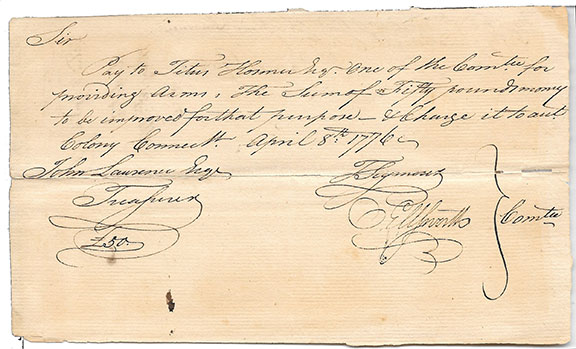 Sir
Pay to Titus Hosmer Esqr. One of the Comtee for
providing Arms, the Sum of Fifty pounds money
to be improved for that purpose – & Charge it to acct
Colony Connectt. April 8th. 1776
John Lawrence Esqr
Treasurer
£50.
T Seymour
O Ellsworth
Comtee